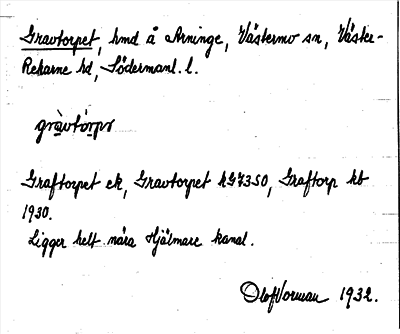 Gravtorpet, hmd å Arninge, Västermo sn, Väster-
Rekarne hd, Södermanl. l.
gràvtòrpə
Graftorpet ek, Gravtorpet hG7350, Graftorp kb
1930.
Ligger helt nära Hjälmare kanal.
Olof Vorman 1932.